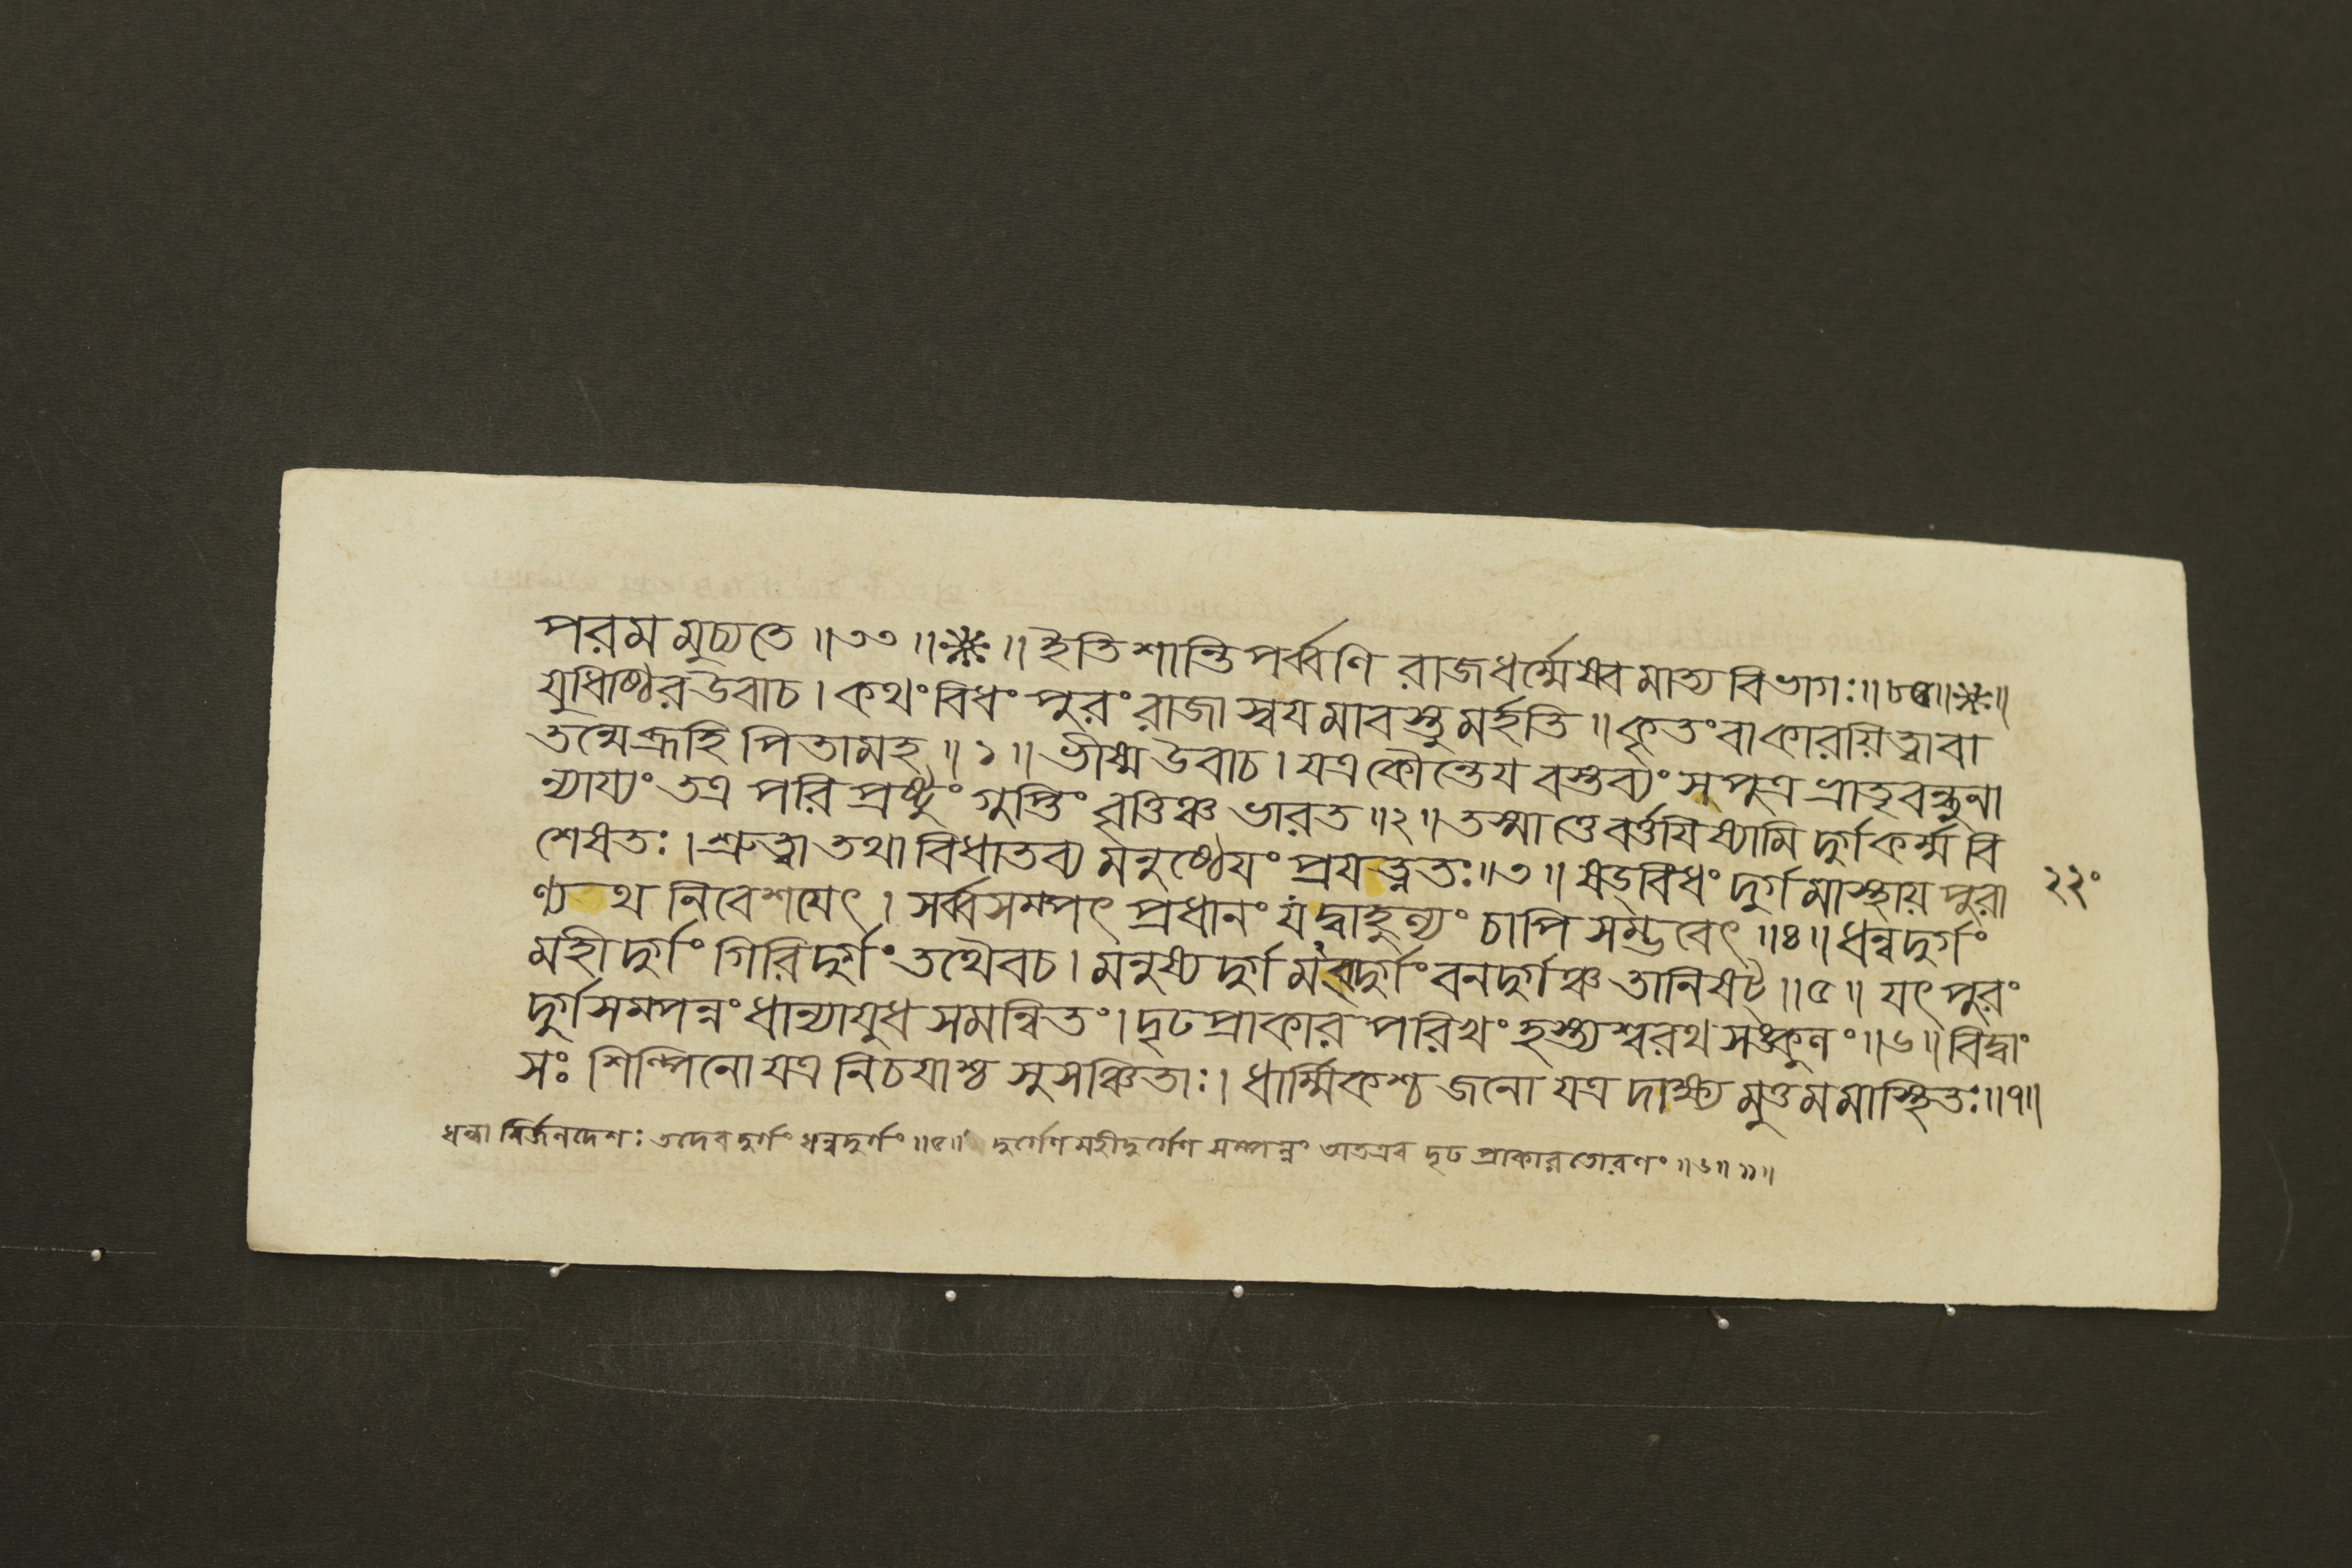 পরমমুচ্যতে ॥৩৩॥❋॥ ইতি শান্তিপর্ব্বণি রাজধর্ম্মেষ্বমাত্যবিভাগঃ॥৮৫॥❋॥
যুধিষ্ঠির উবাচ। কথংবিধং পুরং রাজা স্বয়মাবস্তুমর্হতি॥ কৃতং বা কারয়িত্বা বা
তন্মে ব্রূহি পিতামহ॥১॥ ভীষ্ম উবাচ। যত্র কৌন্তেয় বস্তব্যং সপুত্রভ্রাতৃবন্ধুনা
ন্যায্যং তত্র পরিপ্রষ্টুং গুপ্তিং বৃত্তিঞ্চ ভারত॥২॥ তস্মাত্তে বর্ত্তয়িষ্যামি দুর্গকর্ম্ম বি
শেষতঃ। শ্রুত্বা তথা বিধাতব্যমনুষ্ঠেয়ং প্রযত্নতঃ॥৩॥ ষড়্বিধং দুর্গমাস্থায় পুরা
ণ্যথ নিবেশয়েৎ। সর্ব্বসম্পৎপ্রধানং যদ্বাহুল্যং চাপি সম্ভবেৎ॥৪॥ ধন্বদুর্গং
মহীদুর্গং গিরিদুর্গং তথৈব চ। মনুষ্যদুর্গমব্দুর্গং বনদুর্গঞ্চ তানি ষট্॥৫॥ যৎ পুরং
দুর্গসম্পন্নং ধান্যায়ুধসমন্বিতং। দৃঢপ্রাকারপরিখং হস্ত্যশ্বরথসঙ্কুলং॥৬॥ বিদ্বাং
সঃ শিল্পিনো যত্র নিচয়াশ্চ সুসঞ্চিতাঃ। ধার্ম্মিকশ্চ জনো যত্র দাক্ষ্যমুত্তমমাস্থিতঃ॥৭॥
২২০
ধন্বা নির্জনদেশঃ তদেব দুর্গং ধন্বদুর্গং॥৫॥ দুর্গেণ মহীদুর্গেণ সম্পন্নং অতএব দৃঢপ্রাকারতোরণং॥৬॥ ॥